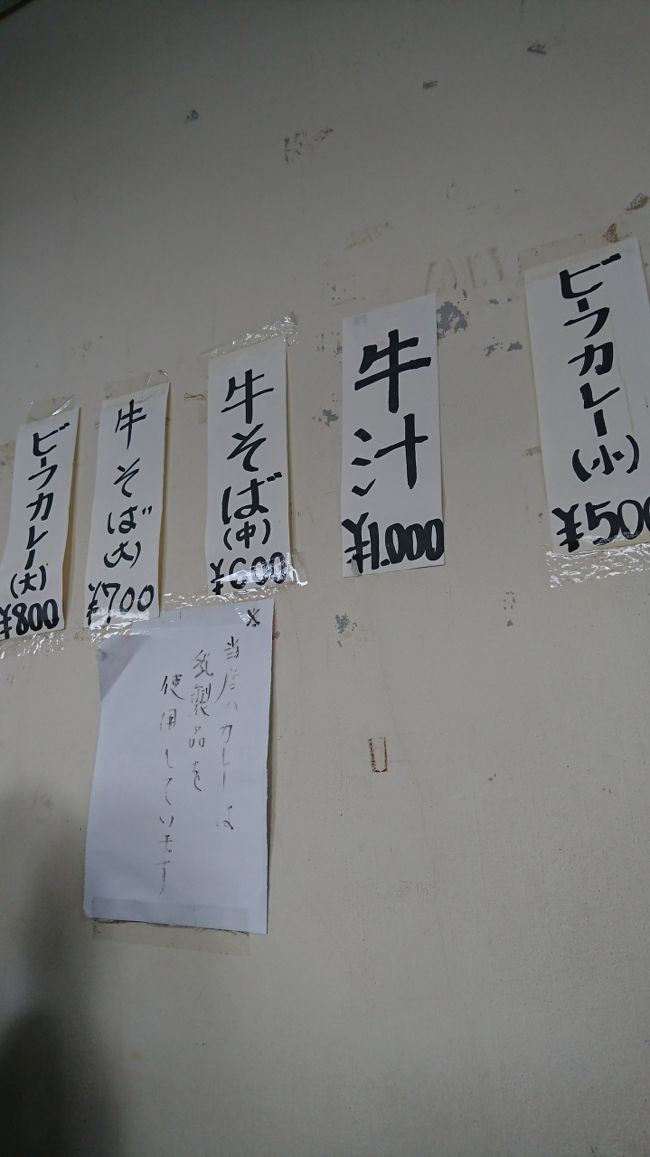 ビーフカレー(小)
¥500
牛汁
¥1.000
牛そば(中)
¥600
牛そば(大)
¥700
ビーフカレー(大)
¥800
※
当店のカレーは
乳製品を
使用しています